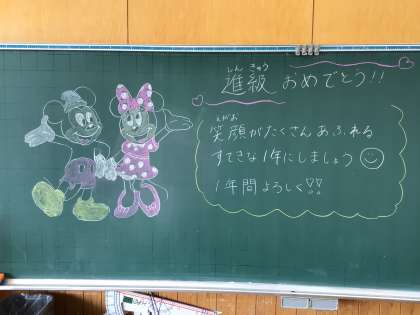 しん きゅう
進級 おめでとう!!
えがお
笑顔がたくさんあふれる
すてきな1年にしましょう
1年間よろしく!!